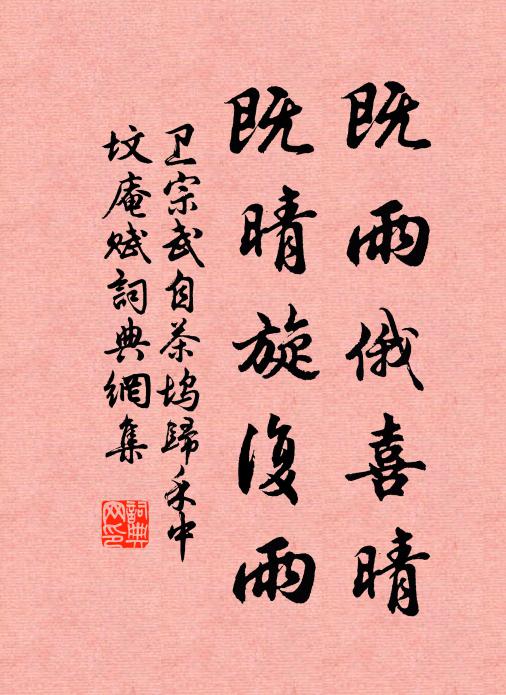 既雨俄喜晴
既晴旋復雨
卫宗武自茶坞歸禾中
坟庵赋詞典網集
詞典
网印